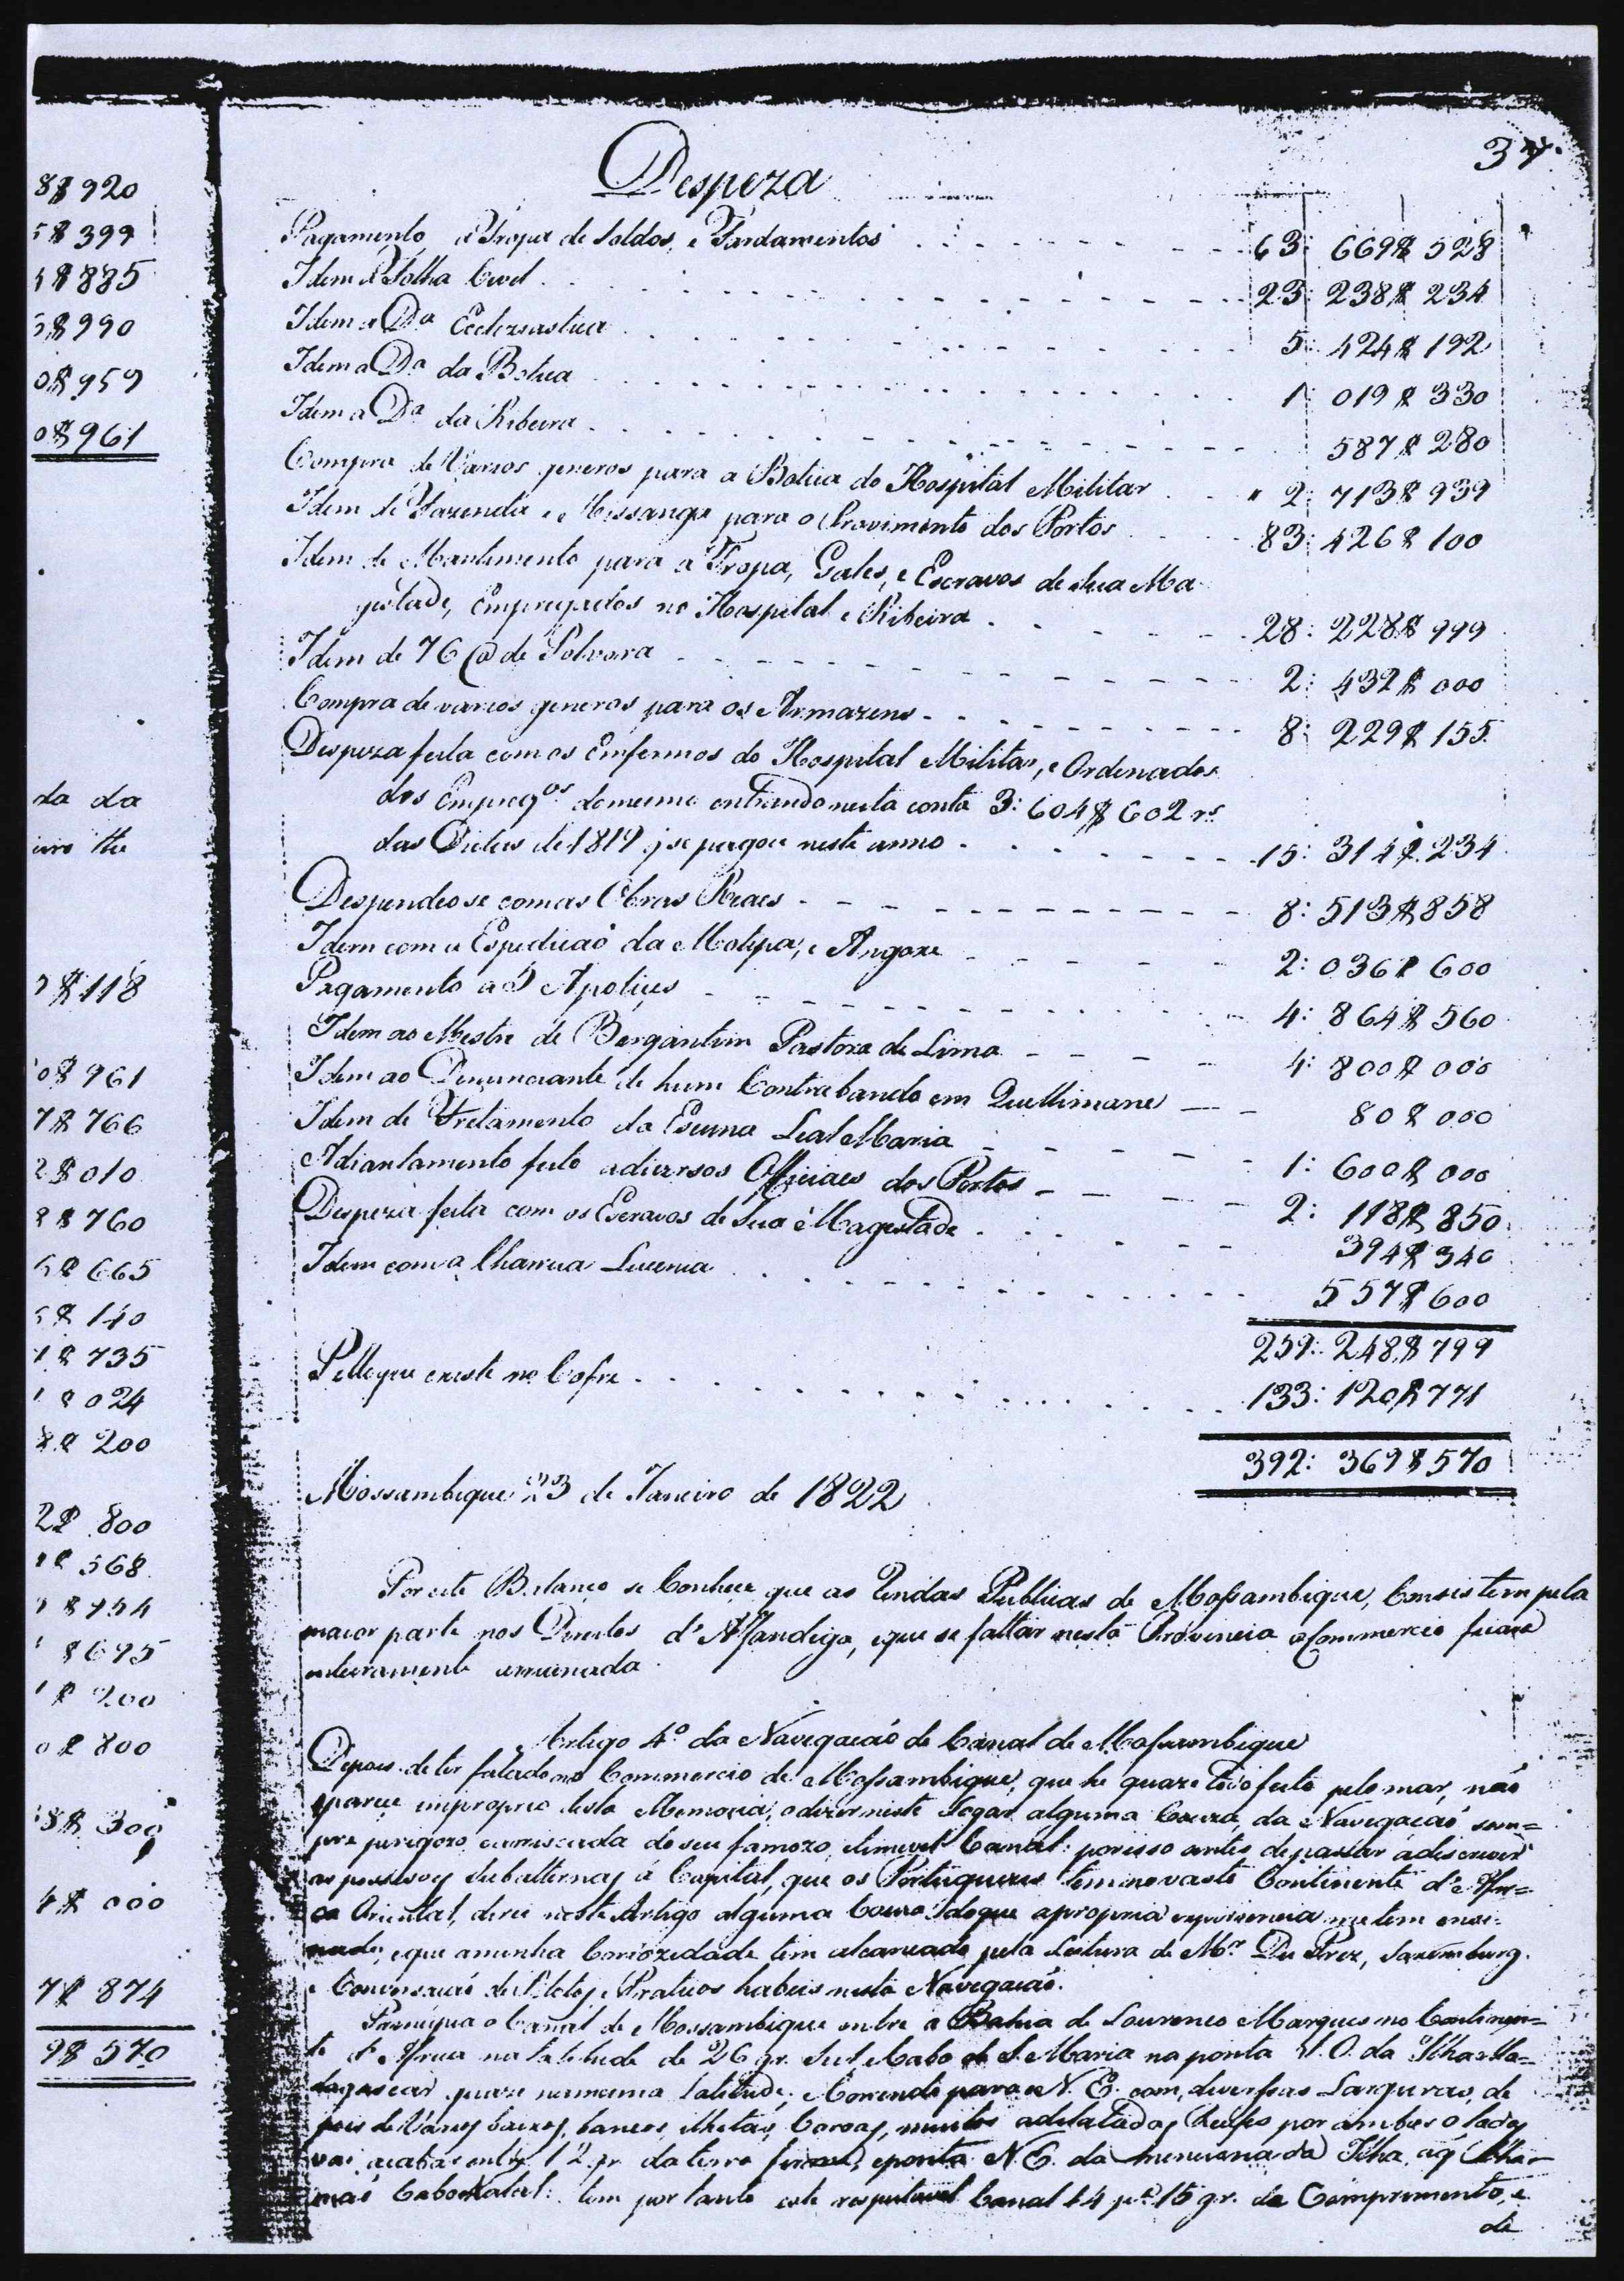 37.
8$920
5$399
4$885
5$990
0$959
0$961
da da
7$118
0$961
7$766
2$010
8$760
5$665
5$140
1$735
1$024
8$200
2$800
1$568
7$754
$695
1$200
0$800
8$300
4$000
7$874
9$570
Despeza
Pagamento á Tropa de Soldos, e Fardamentos 63: 669$528
Idem á Folha Civil 23: 238$234
Idem a Da Ecclesiastica 5: 424$192
Idem a Da da Botica 1: 019$330
Idem a Da da Ribeira 587$280
Compra de Varios generos para a Botica do Hospital Militar 2: 713$939
Idem de Fazenda e Missanga para o Provimento dos Portos 83: 426$100
Idem de Mantimento para a Tropa, Galés, e Escravos de Sua Ma
gestade, Empregados no Hospital e Ribeira 28: 228$999
Idem de 76 @ de Polvora 2: 432$000
Compra de varios generos para os Armazens 8: 229$155
Despeza feita com os Enfermos do Hospital Militar, e Ordenados
dos Empregos do mesmo entrando nesta conta 3: 604$602 rs
das Dietas de 1819 q se pagou neste anno 15: 314$234
Despendeo se com as Obras Reaes 8: 513$858
Idem com a Expedicaõ da Matipa, e Angoxe 2: 036$600
Pagamento a 5 Apolices 4: 864$560
Idem ao Mestre do Bergantim Pastora de Lima 4: 800$000
Idem ao Denunciante de hum Contrabando em Quellimane 80$000
Idem de Fretamento da Escuna Leal Maria 1: 600$000
Adiantamento feito a diversos Officiaes dos Portos 2: 118$850
Despeza feita com os Escravos de Sua Magestade 394$340
Idem com a Charrua Lucenia 557$600
259: 248$799
P. Mo que existe no Cofre 133: 120$771
392: 369$570
Mossambique 23 de Janeiro de 1822
Por este Balanço se Conhece que as Rendas Publicas de Mossambique, Consistem pela
maior parte nos Direitos d'Alfandega, e que se faltar nesta Provincia o Commercio ficará
inteiramente arruinada.
Artigo 4º da Navegacaõ do Canal de Mossambique
Depois de ter falado no Commercio de Mossambique, que he quaze todo feito pelo mar, naõ
parece improprio desta Memoria, o dizer neste Logar alguma Couza, da Navegacaõ sem=
pre perigozo e arriscada do seu famozo, e temivel Canal: por isso antes de passar á discrever
as possesoes Subalternas á Capital, que os Portuguezes tem no vasto Continente d'Afri=
ca Oriental, direi neste Artigo alguma Couza do que a propria experiencia me tem ensi=
nado, e que a minha Coriozidade tem alcancado pela Leitura de Mr. Du Prez, Saxemburg.
e Conversacaõ de Pilotos, e Praticos habeis nesta Navegacaõ.
Principia o Canal de Mossambique entre a Bahia de Lourenco Marques no Continen=
te d'Africa na Latitude de 26 gr. Sul e Cabo de S. Maria na ponta S.O. da Ilha Ma=
dagascar quaze na mesma Latitude; e Correndo para o N.E. com diversas Larguras, de
pois de Varios baixos, bancos, Ilhetas, Coroas, muitos adelatados Recifes por ambos o lados
vai acabar entre 12 gr. da terra firme, e ponta N.E. da mencionada Ilha, aq Cha=
maõ Cabo Natal: tem por tanto este respeitavel Canal 14 pa 15 gr. de Comprimento, e
de